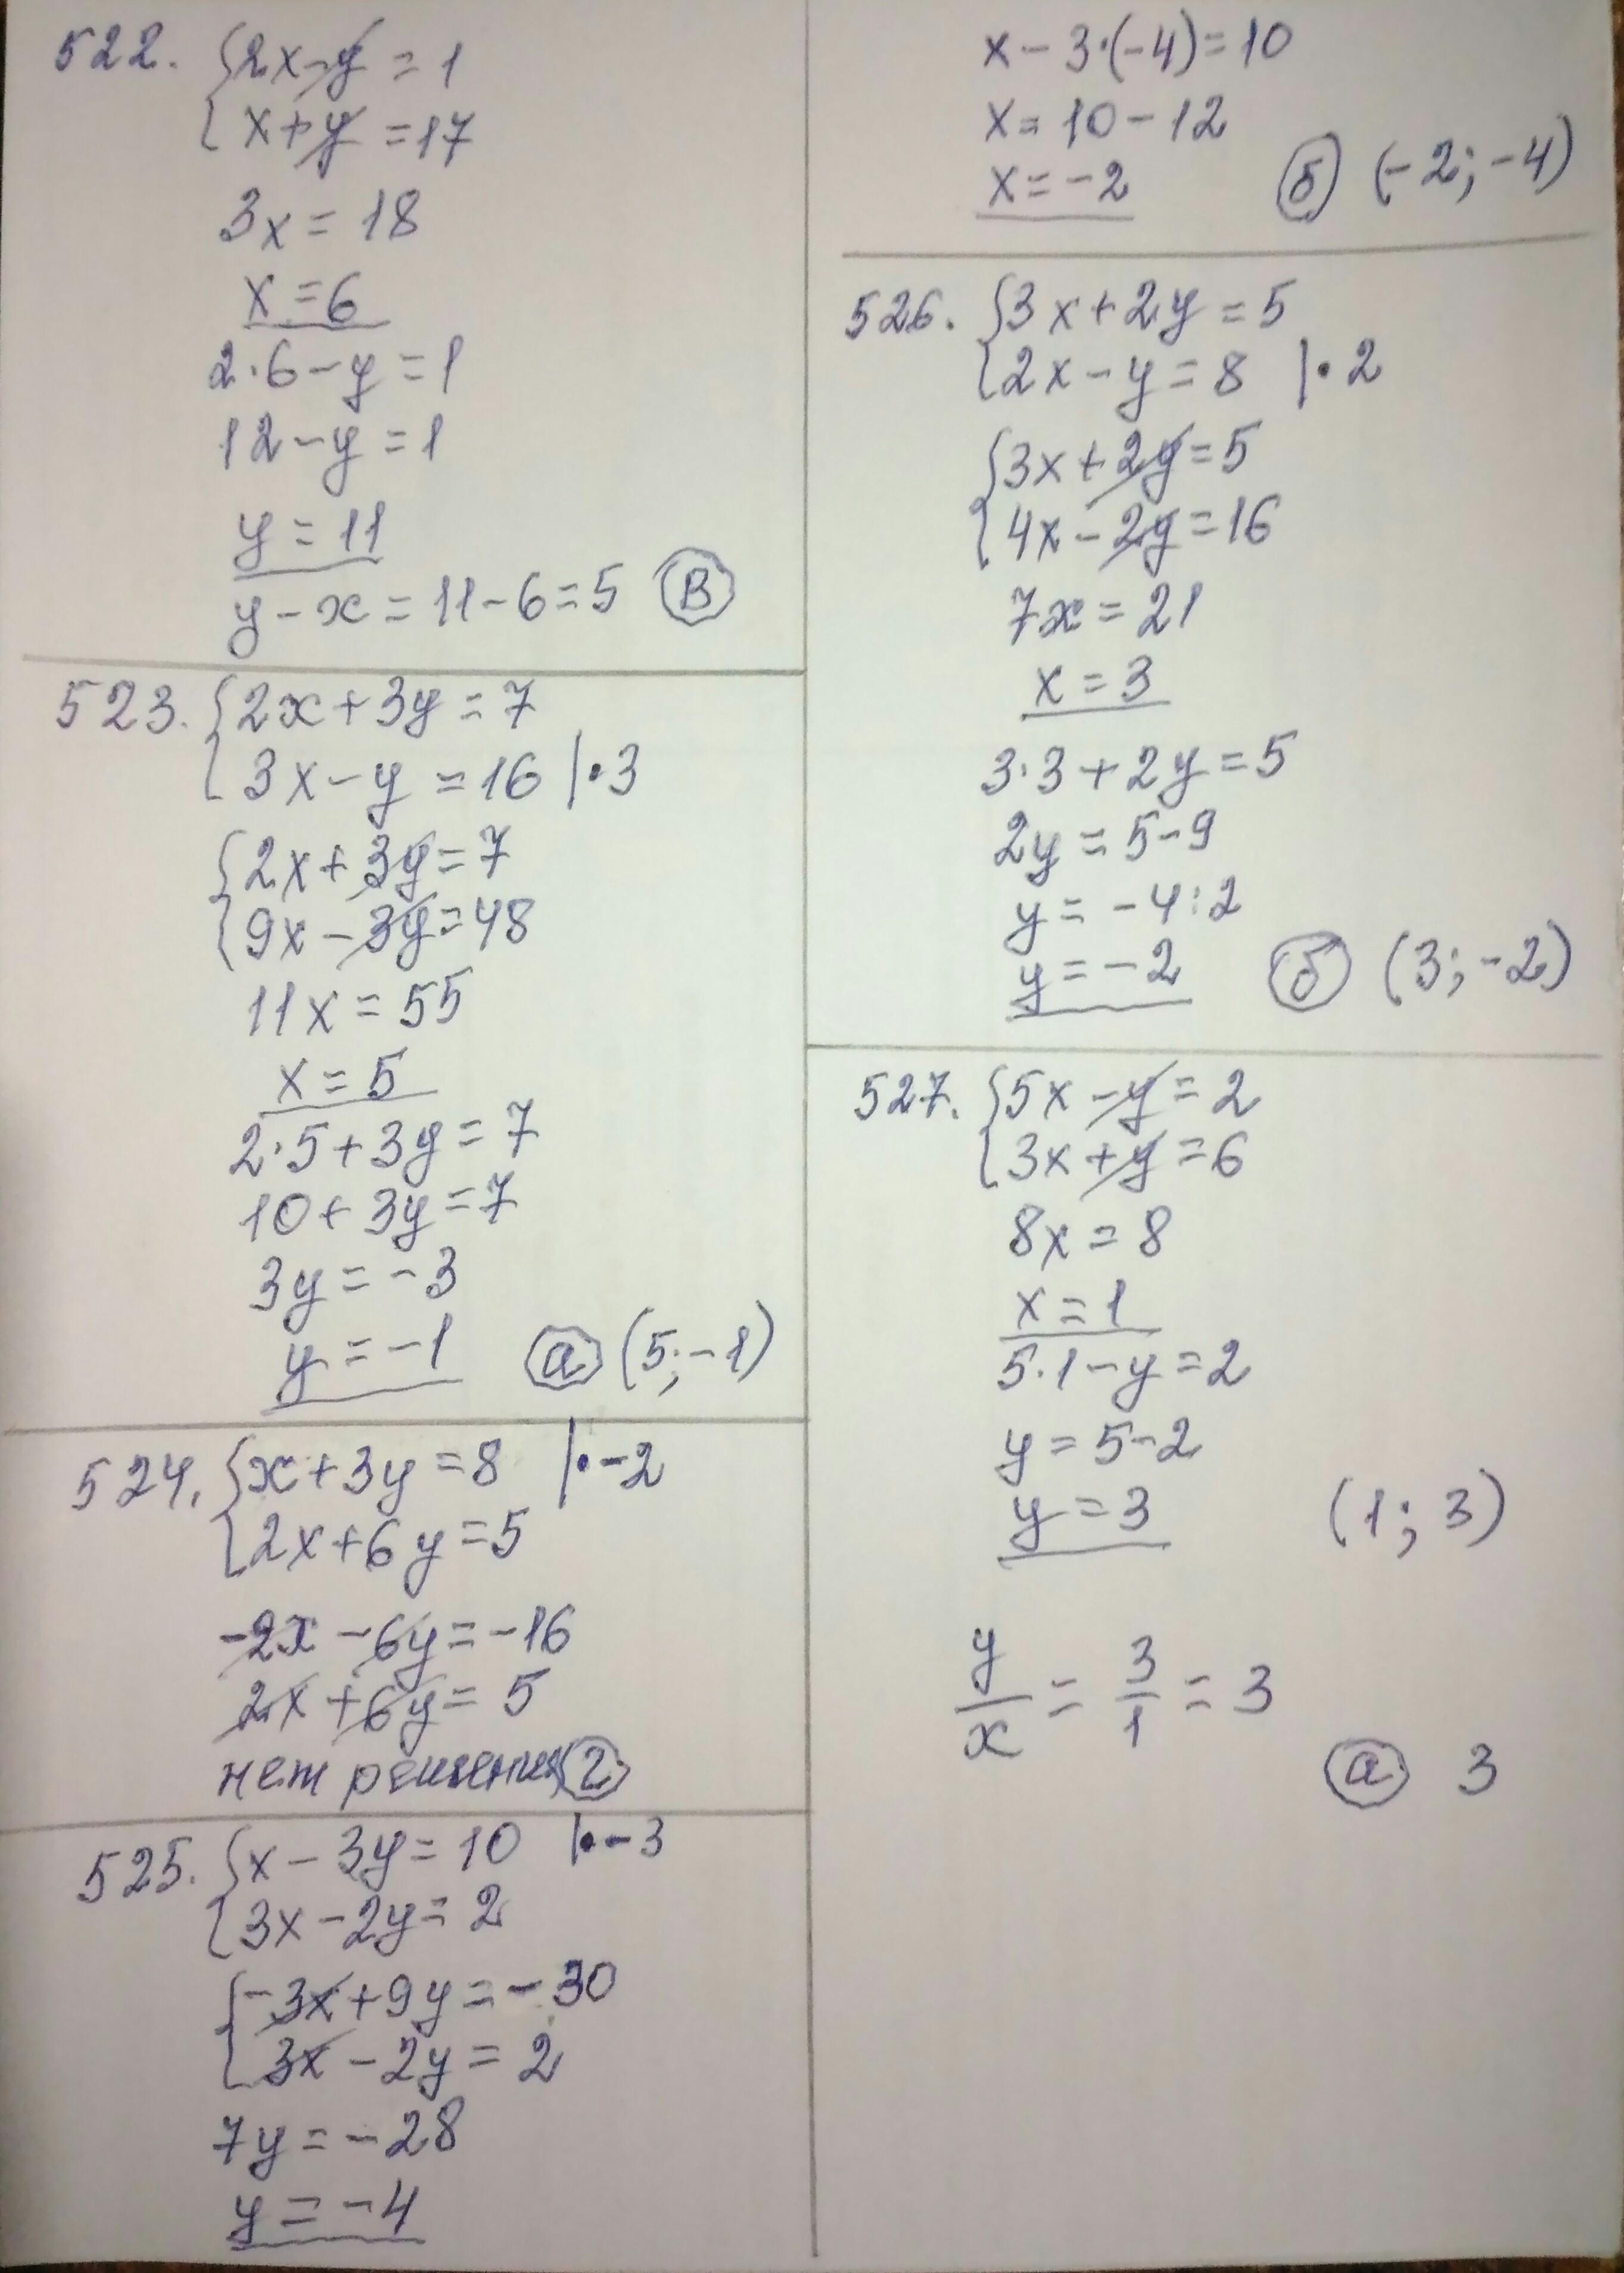 522. { 2x - y = 1
{ x + y = 17
3x = 18
x = 6
2·6 - y = 1
12 - y = 1
y = 11
y - x = 11 - 6 = 5 (в)
523. { 2x + 3y = 7
{ 3x - y = 16 |·3
{ 2x + 3y = 7
{ 9x - 3y = 48
11x = 55
x = 5
2·5 + 3y = 7
10 + 3y = 7
3y = -3
y = -1 (а) (5; -1)
524. { x + 3y = 8 |·-2
{ 2x + 6y = 5
-2x - 6y = -16
2x + 6y = 5
нет решения (г)
525. { x - 3y = 10 |·-3
{ 3x - 2y = 2
{ -3x + 9y = -30
{ 3x - 2y = 2
7y = -28
y = -4
x - 3·(-4) = 10
x = 10 - 12
x = -2 (б) (-2; -4)
526. { 3x + 2y = 5
{ 2x - y = 8 |·2
{ 3x + 2y = 5
{ 4x - 2y = 16
7x = 21
x = 3
3·3 + 2y = 5
2y = 5 - 9
y = -4 : 2
y = -2 (б) (3; -2)
527. { 5x - y = 2
{ 3x + y = 6
8x = 8
x = 1
5·1 - y = 2
y = 5 - 2
y = 3 (1; 3)
y/x = 3/1 = 3
(а) 3